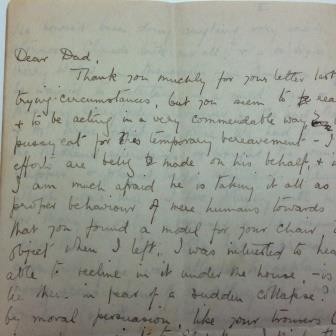 Dear Dad,
Thank you muchly for your letter last
trying circumstances, but you seem to be
& to be acting in a very commendable way
pussy cat for his temporary bereavement -
efforts are being made on his behalf, &
I am much afraid he is taking it all as
proper behaviour of mere humans towards
that you found a model for your chair
object when I left. I was interested to hea
able to recline in it under the house - is
in fear of a sudden collapse?
be moral persuasion, like your trousers